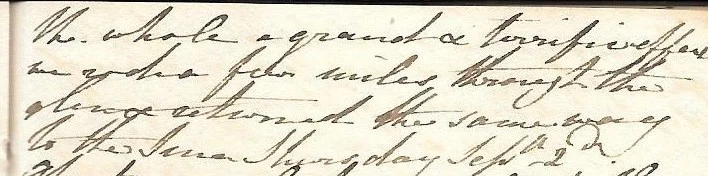 the whole a grand & terrific effect
we rode a few miles through the
glen & returned the same way
to the Inn Thursday Sept 2d